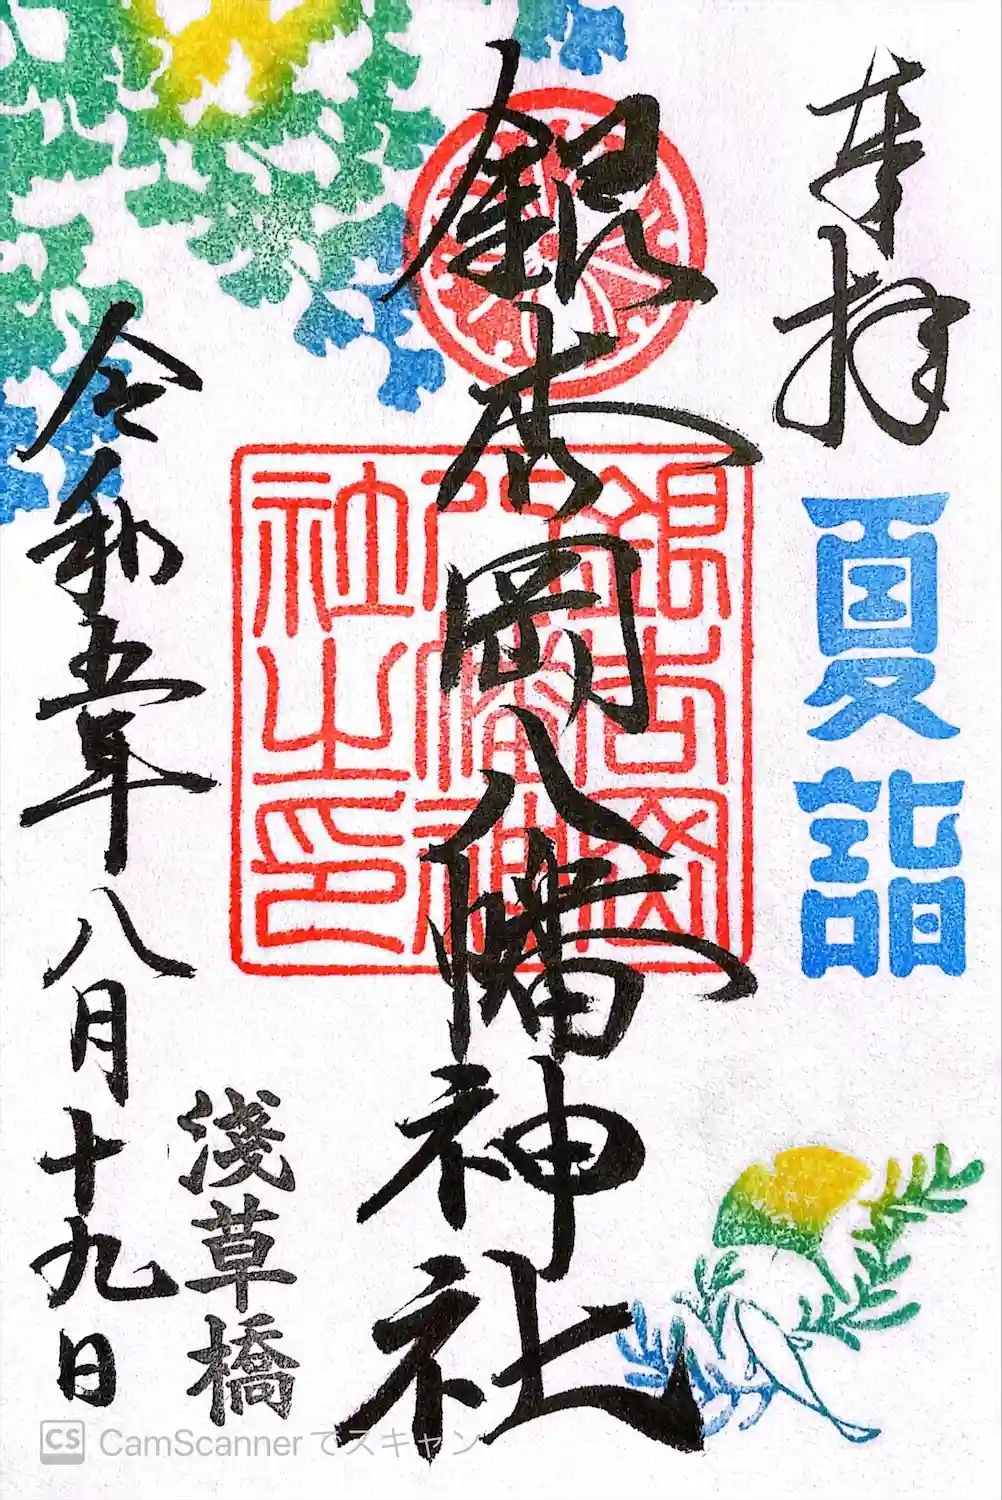 奉拝
夏詣
銀杏岡八幡神社
銀杏岡
八幡神
社之印
浅草橋
令和五年八月十九日
CS CamScannerでスキャン